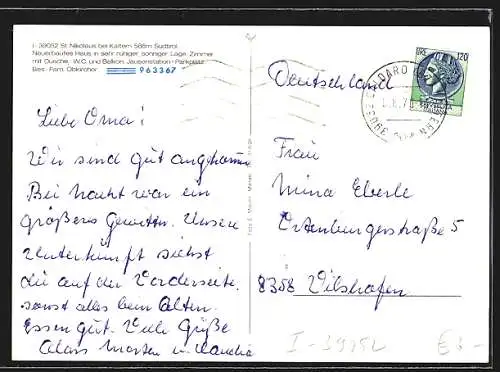 I - 39052 St. Nikolaus bei Kaltern 568m Südtirol
Neuerbautes Haus in sehr ruhiger, sonniger Lage. Zimmer
mit Dusche, W.C. und Balkon. Jausenstation - Parkplatz
Bes. Fam. Obkircher
963367
Liebe Oma!
Wir sind gut angekommen
Bei Nacht war ein
größeres Gewitter. Unsere
Unterkunft siehst
du auf der Vorderseite.
sonst alles beim Alten.
Essen gut. Viele Grüße
Alois Marten u. Claudia
LIRE 120
Deutschland
Frau
Mina Eberle
Ortenburgerstraße 5
8358 Vilshofen
I-39052
€3,-